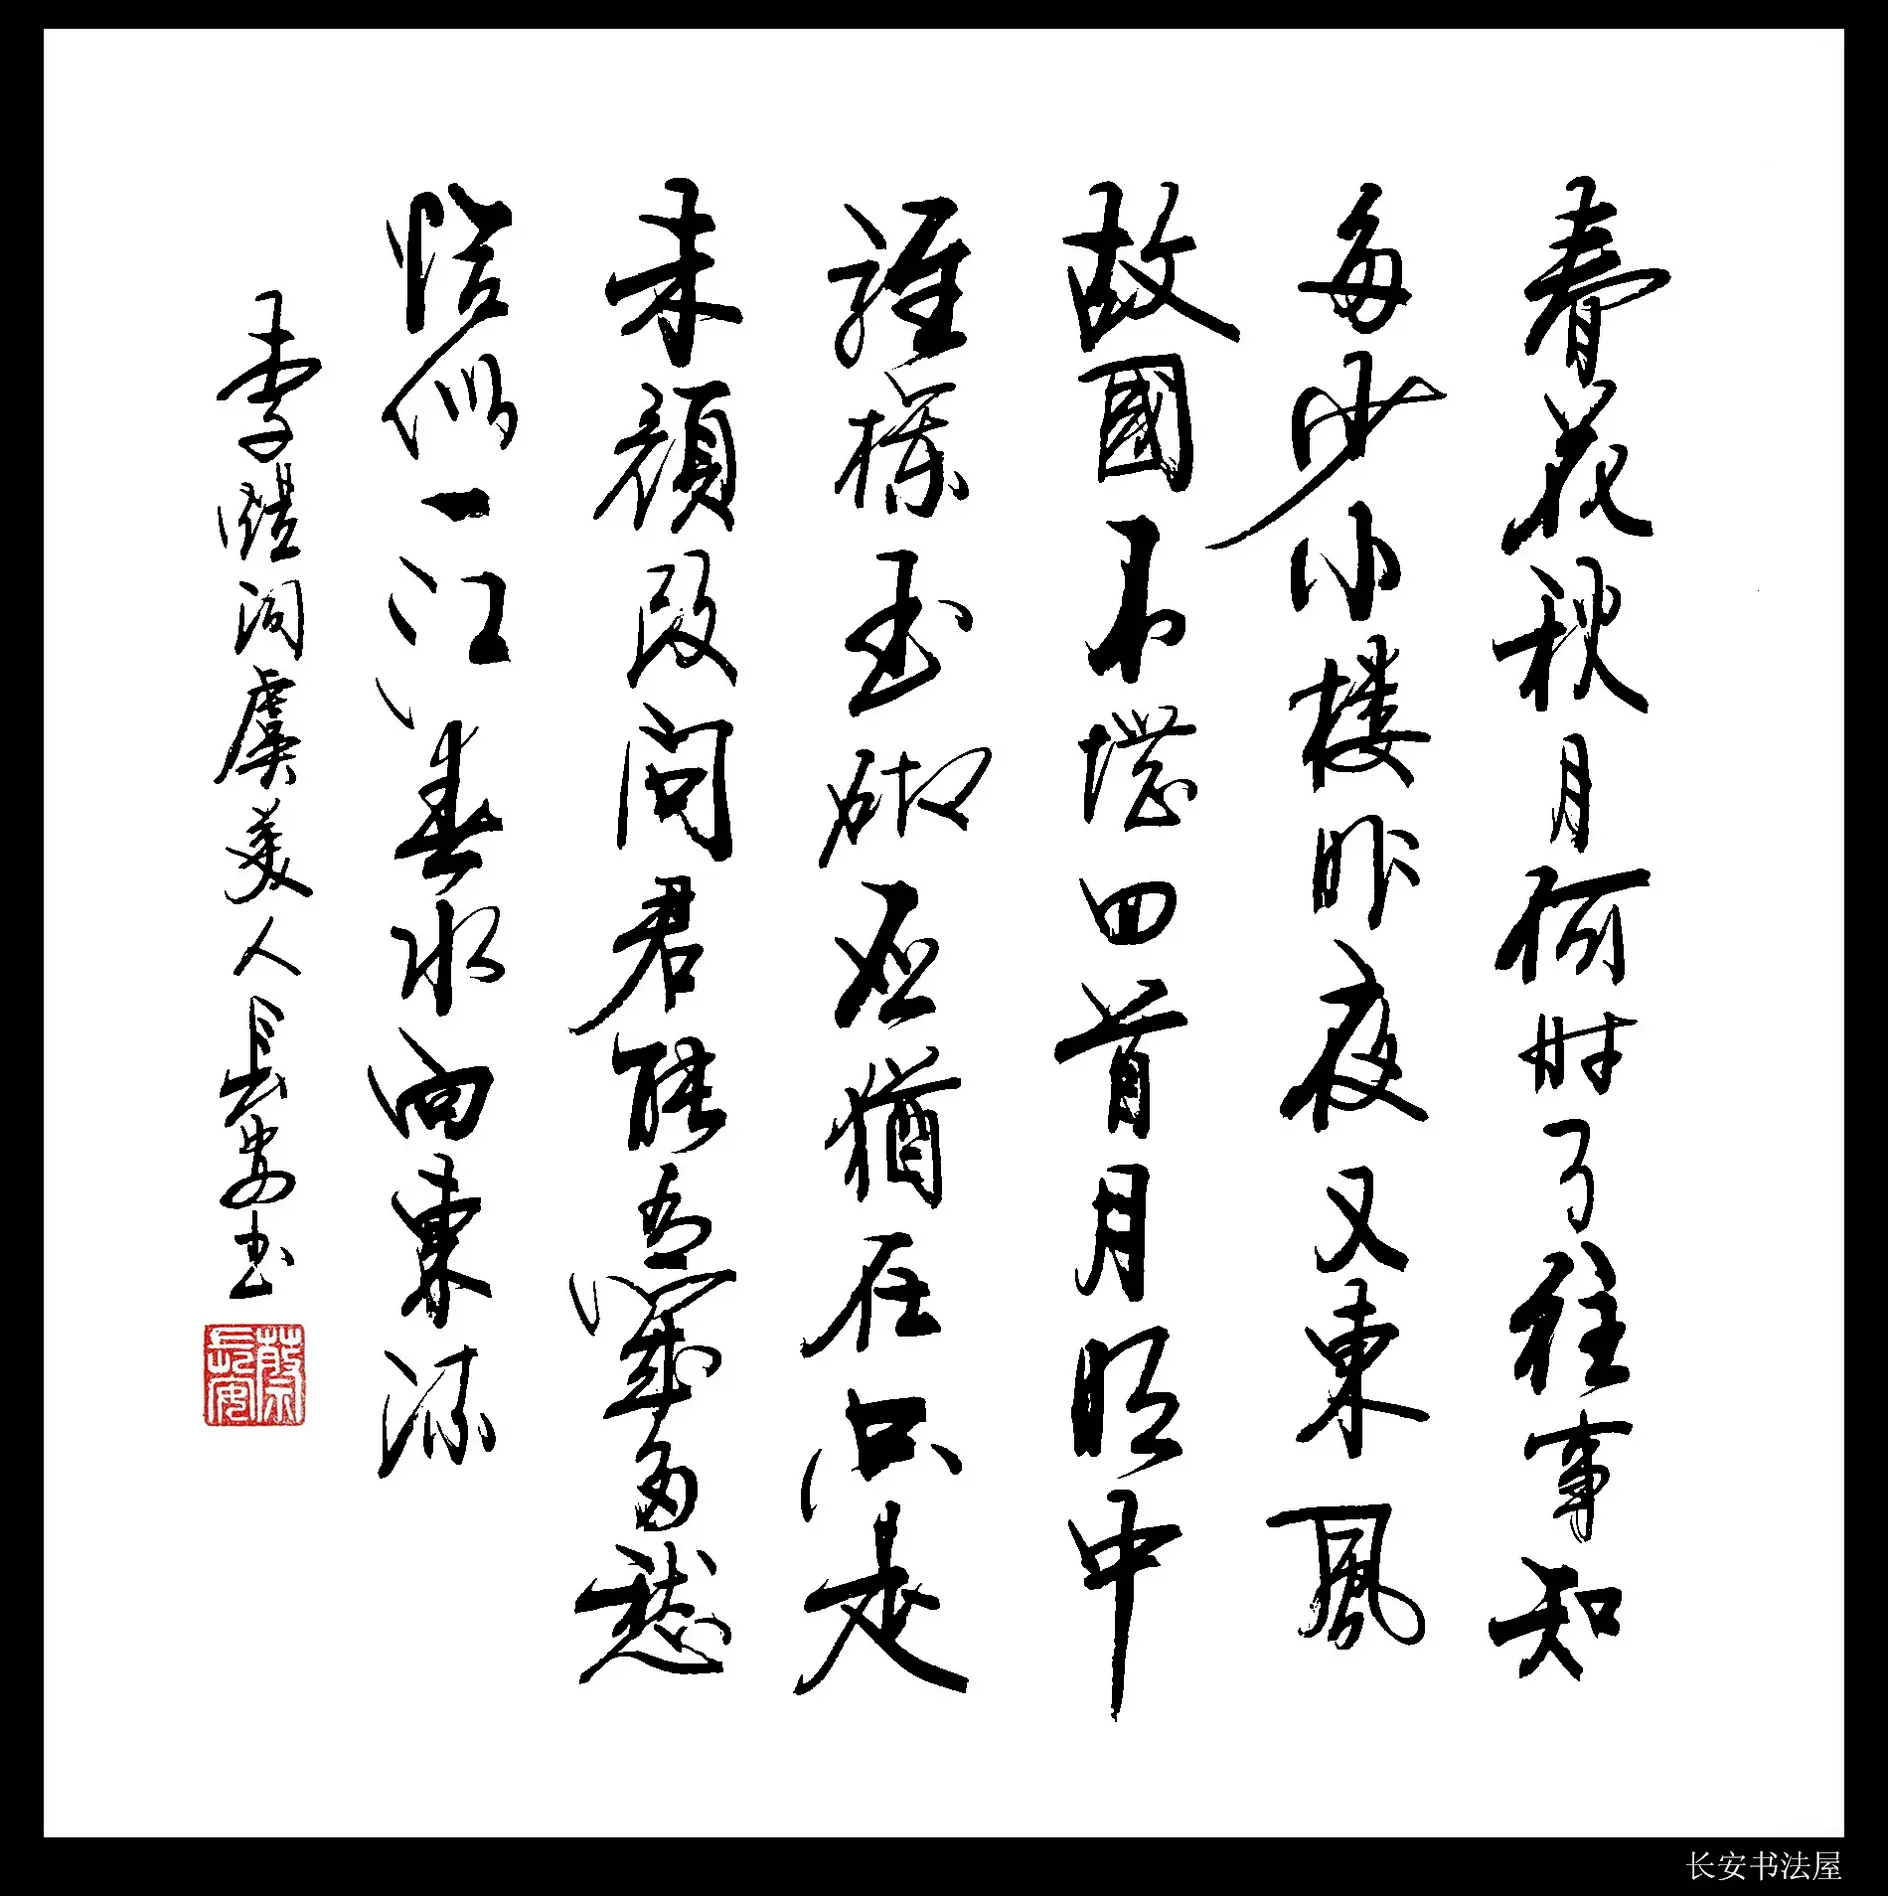 春花秋月何时了往事知
多少小楼昨夜又東風
故國不堪回首月明中
雕栏玉砌应猶在只是
朱顔改问君能有幾多愁
恰似一江春水向東流
李煜词虞美人長安书
蔡長安
长安书法屋